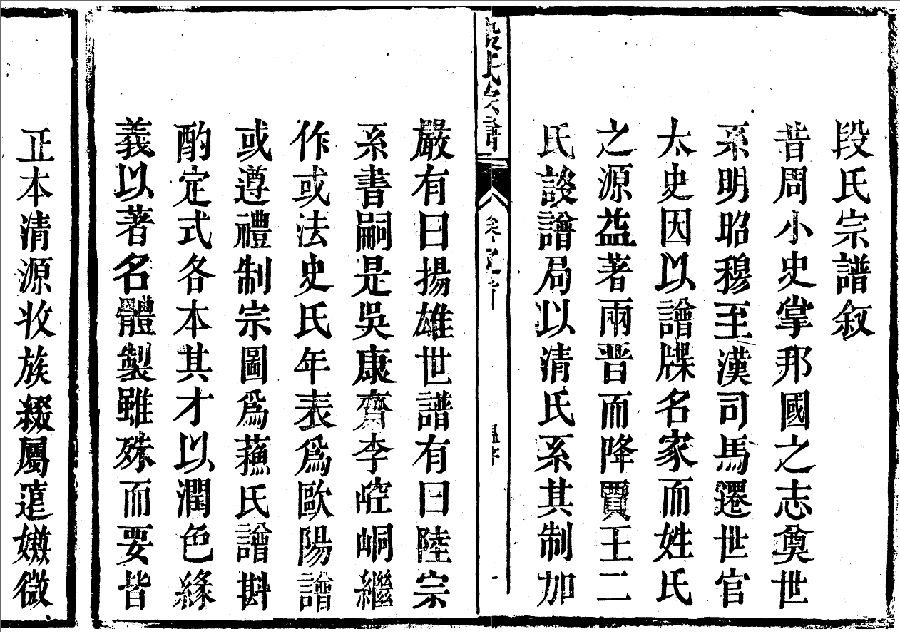 段氏宗譜叙
昔周小史掌邦國之志奠世
系明昭穆至漢司馬遷世官
太史因以譜牒名家而姓氏
之源益著兩晋而降賈王二
氏談譜局以清氏系其制加
段氏宗譜 卷之 一
嚴有曰揚雄世譜有曰陸宗
系書嗣是吳康齋李崆峒繼
作或法史氏年表爲歐陽譜
或遵禮制宗圖爲蘓氏譜斟
酌定式各本其才以潤色緣
義以著名體製雖殊而要皆
正本清源收族綴屬遠嫌微